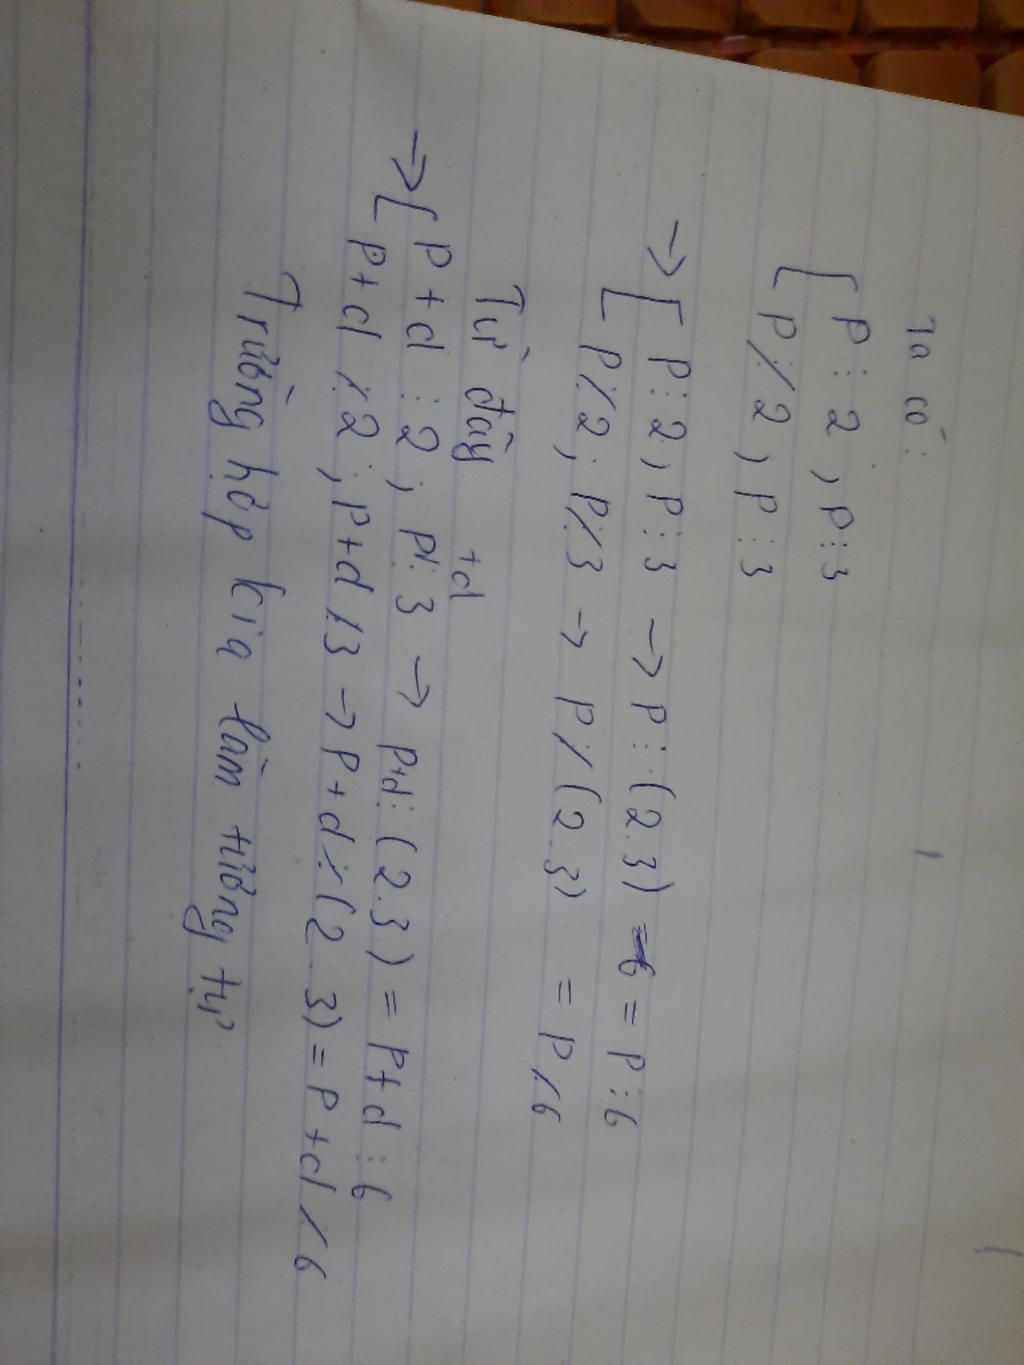 Ta có:
[ P ⋮ 2 , P ⋮ 3
P ⋮̸ 2 , P ⋮ 3
→ [ P ⋮ 2 , P ⋮ 3 → P ⋮ (2.3) = P ⋮ 6
P ⋮̸ 2 ; P ⋮̸ 3 → P ⋮̸ (2.3) = P ⋮̸ 6
Từ đây
→ [ P + d ⋮ 2 ; P +d ⋮ 3 → P+d ⋮ (2.3) = P + d ⋮ 6
P + d ⋮̸ 2 ; P + d ⋮̸ 3 → P + d ⋮̸ (2.3) = P + d ⋮̸ 6
Trường hợp kia làm tương tự